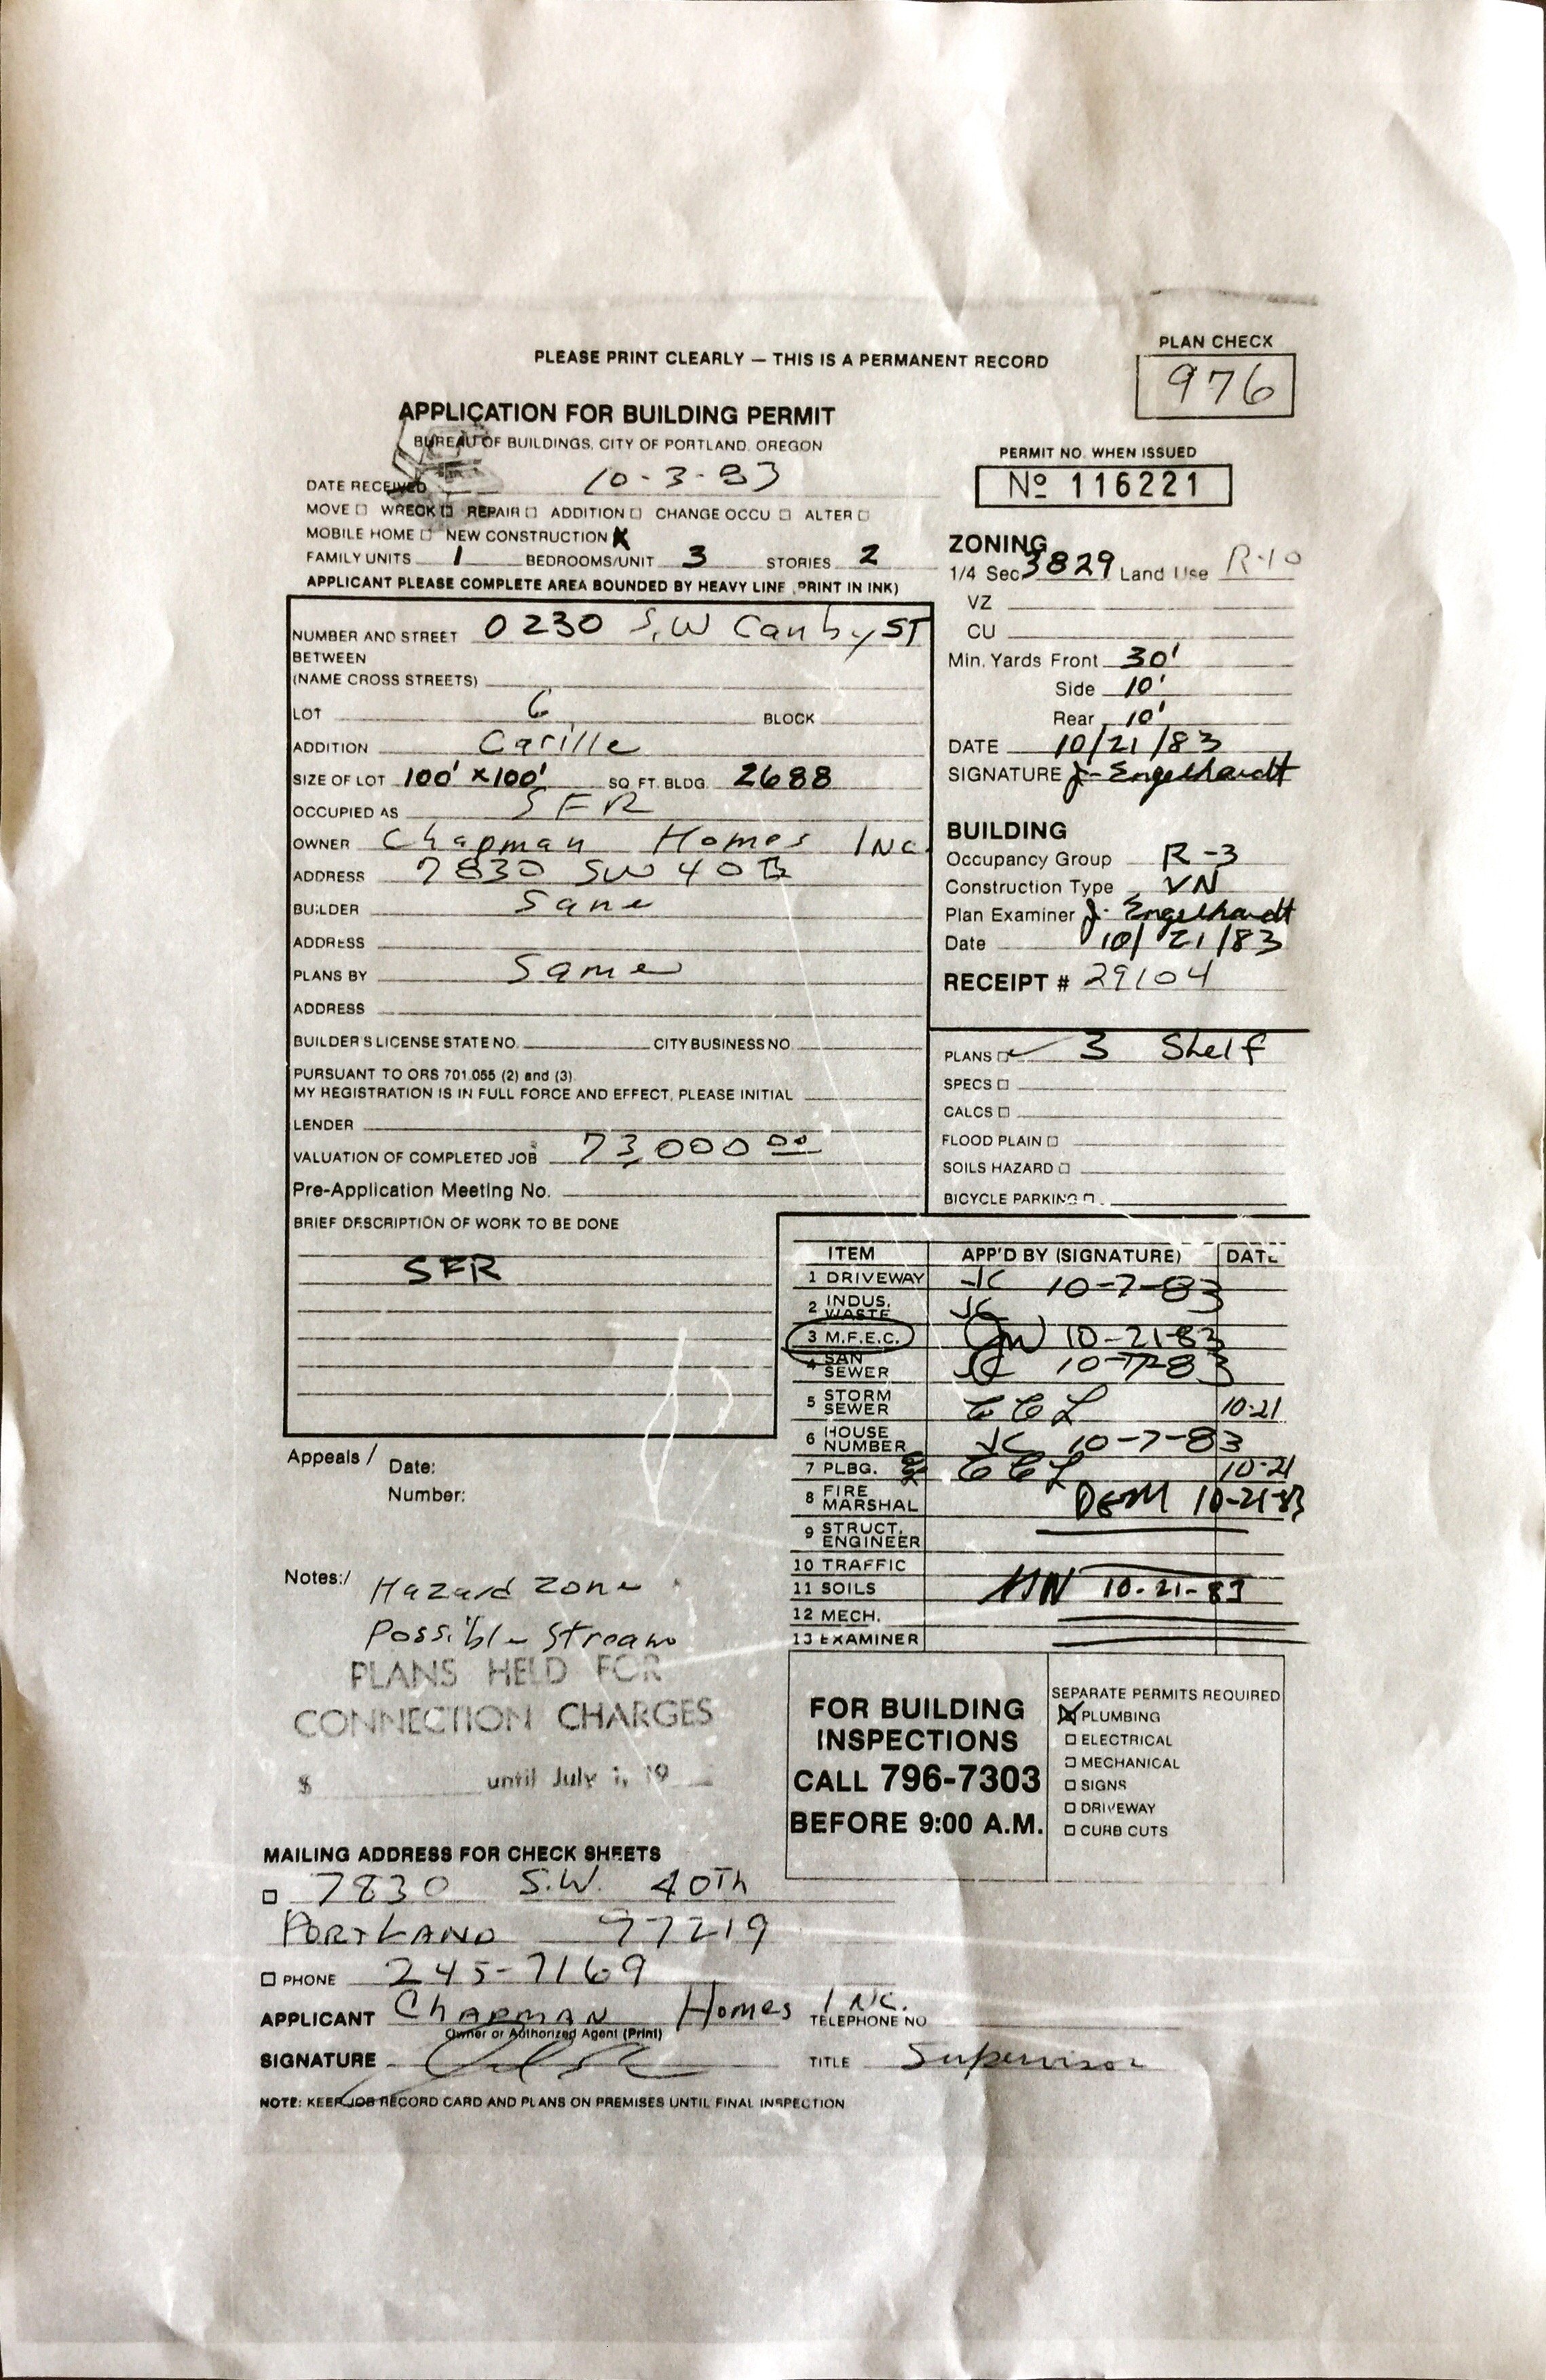 PLEASE PRINT CLEARLY — THIS IS A PERMANENT RECORD
PLAN CHECK
976
APPLICATION FOR BUILDING PERMIT
BUREAU OF BUILDINGS, CITY OF PORTLAND, OREGON
PERMIT NO. WHEN ISSUED
Nº 116221
DATE RECEIVED 10-3-83
MOVE ☐ WRECK ☐ REPAIR ☐ ADDITION ☐ CHANGE OCCU ☐ ALTER ☐
MOBILE HOME ☐ NEW CONSTRUCTION X
FAMILY UNITS 1 BEDROOMS/UNIT 3 STORIES 2
APPLICANT PLEASE COMPLETE AREA BOUNDED BY HEAVY LINE (PRINT IN INK)
NUMBER AND STREET 0230 S.W Canby ST
BETWEEN
(NAME CROSS STREETS)
LOT 6 BLOCK
ADDITION Carille
SIZE OF LOT 100' x100' SQ. FT. BLDG. 2688
OCCUPIED AS SFR
OWNER Chapman Homes Inc.
ADDRESS 7830 SW 40Th
BUILDER Same
ADDRESS
PLANS BY Same
ADDRESS
BUILDER'S LICENSE STATE NO. CITY BUSINESS NO.
PURSUANT TO ORS 701.055 (2) and (3).
MY REGISTRATION IS IN FULL FORCE AND EFFECT, PLEASE INITIAL
LENDER
VALUATION OF COMPLETED JOB 73,000 00
Pre-Application Meeting No.
BRIEF DESCRIPTION OF WORK TO BE DONE
SFR
ZONING
1/4 Sec 3829 Land Use R-10
VZ
CU
Min. Yards Front 30'
Side 10'
Rear 10'
DATE 10/21/83
SIGNATURE J. Engelhardt
BUILDING
Occupancy Group R-3
Construction Type VN
Plan Examiner J. Engelhardt
Date 10/21/83
RECEIPT # 29104
PLANS ☑ 3 Shelf
SPECS ☐
CALCS ☐
FLOOD PLAIN ☐
SOILS HAZARD ☐
BICYCLE PARKING ☐
ITEM APP'D BY (SIGNATURE) DATE
1 DRIVEWAY JC 10-7-83
2 INDUS. WASTE JC
3 M.F.E.C. JW 10-21-83
4 SAN SEWER JC 10-7-83
5 STORM SEWER CCL 10-21
6 HOUSE NUMBER JC 10-7-83
7 PLBG. CCL 10-21
8 FIRE MARSHAL DEM 10-21-83
9 STRUCT. ENGINEER
10 TRAFFIC
11 SOILS 10-21-83
12 MECH.
13 EXAMINER
Appeals / Date:
Number:
Notes:/ Hazard Zone
Possible Stream
PLANS HELD FOR
CONNECTION CHARGES
$ until July 1, 19
FOR BUILDING
INSPECTIONS
CALL 796-7303
BEFORE 9:00 A.M.
SEPARATE PERMITS REQUIRED
☒ PLUMBING
☐ ELECTRICAL
☐ MECHANICAL
☐ SIGNS
☐ DRIVEWAY
☐ CURB CUTS
MAILING ADDRESS FOR CHECK SHEETS
☐ 7830 S.W. 40Th
PORTLAND 97219
☐ PHONE 245-7169
APPLICANT Chapman Homes Inc. TELEPHONE NO
Owner or Authorized Agent (Print)
SIGNATURE TITLE Supervisor
NOTE: KEEP JOB RECORD CARD AND PLANS ON PREMISES UNTIL FINAL INSPECTION